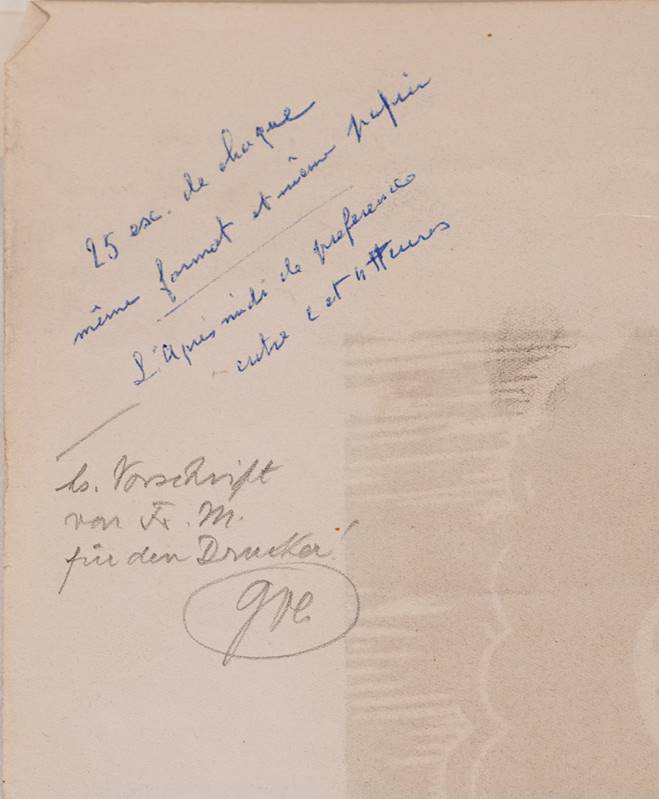 25 ex. de chaque
même format et même papier
L'Après midi de preference
entre 2 et 4 Heures
hs. Vorschrift
von Fr. M.
für den Drucker!